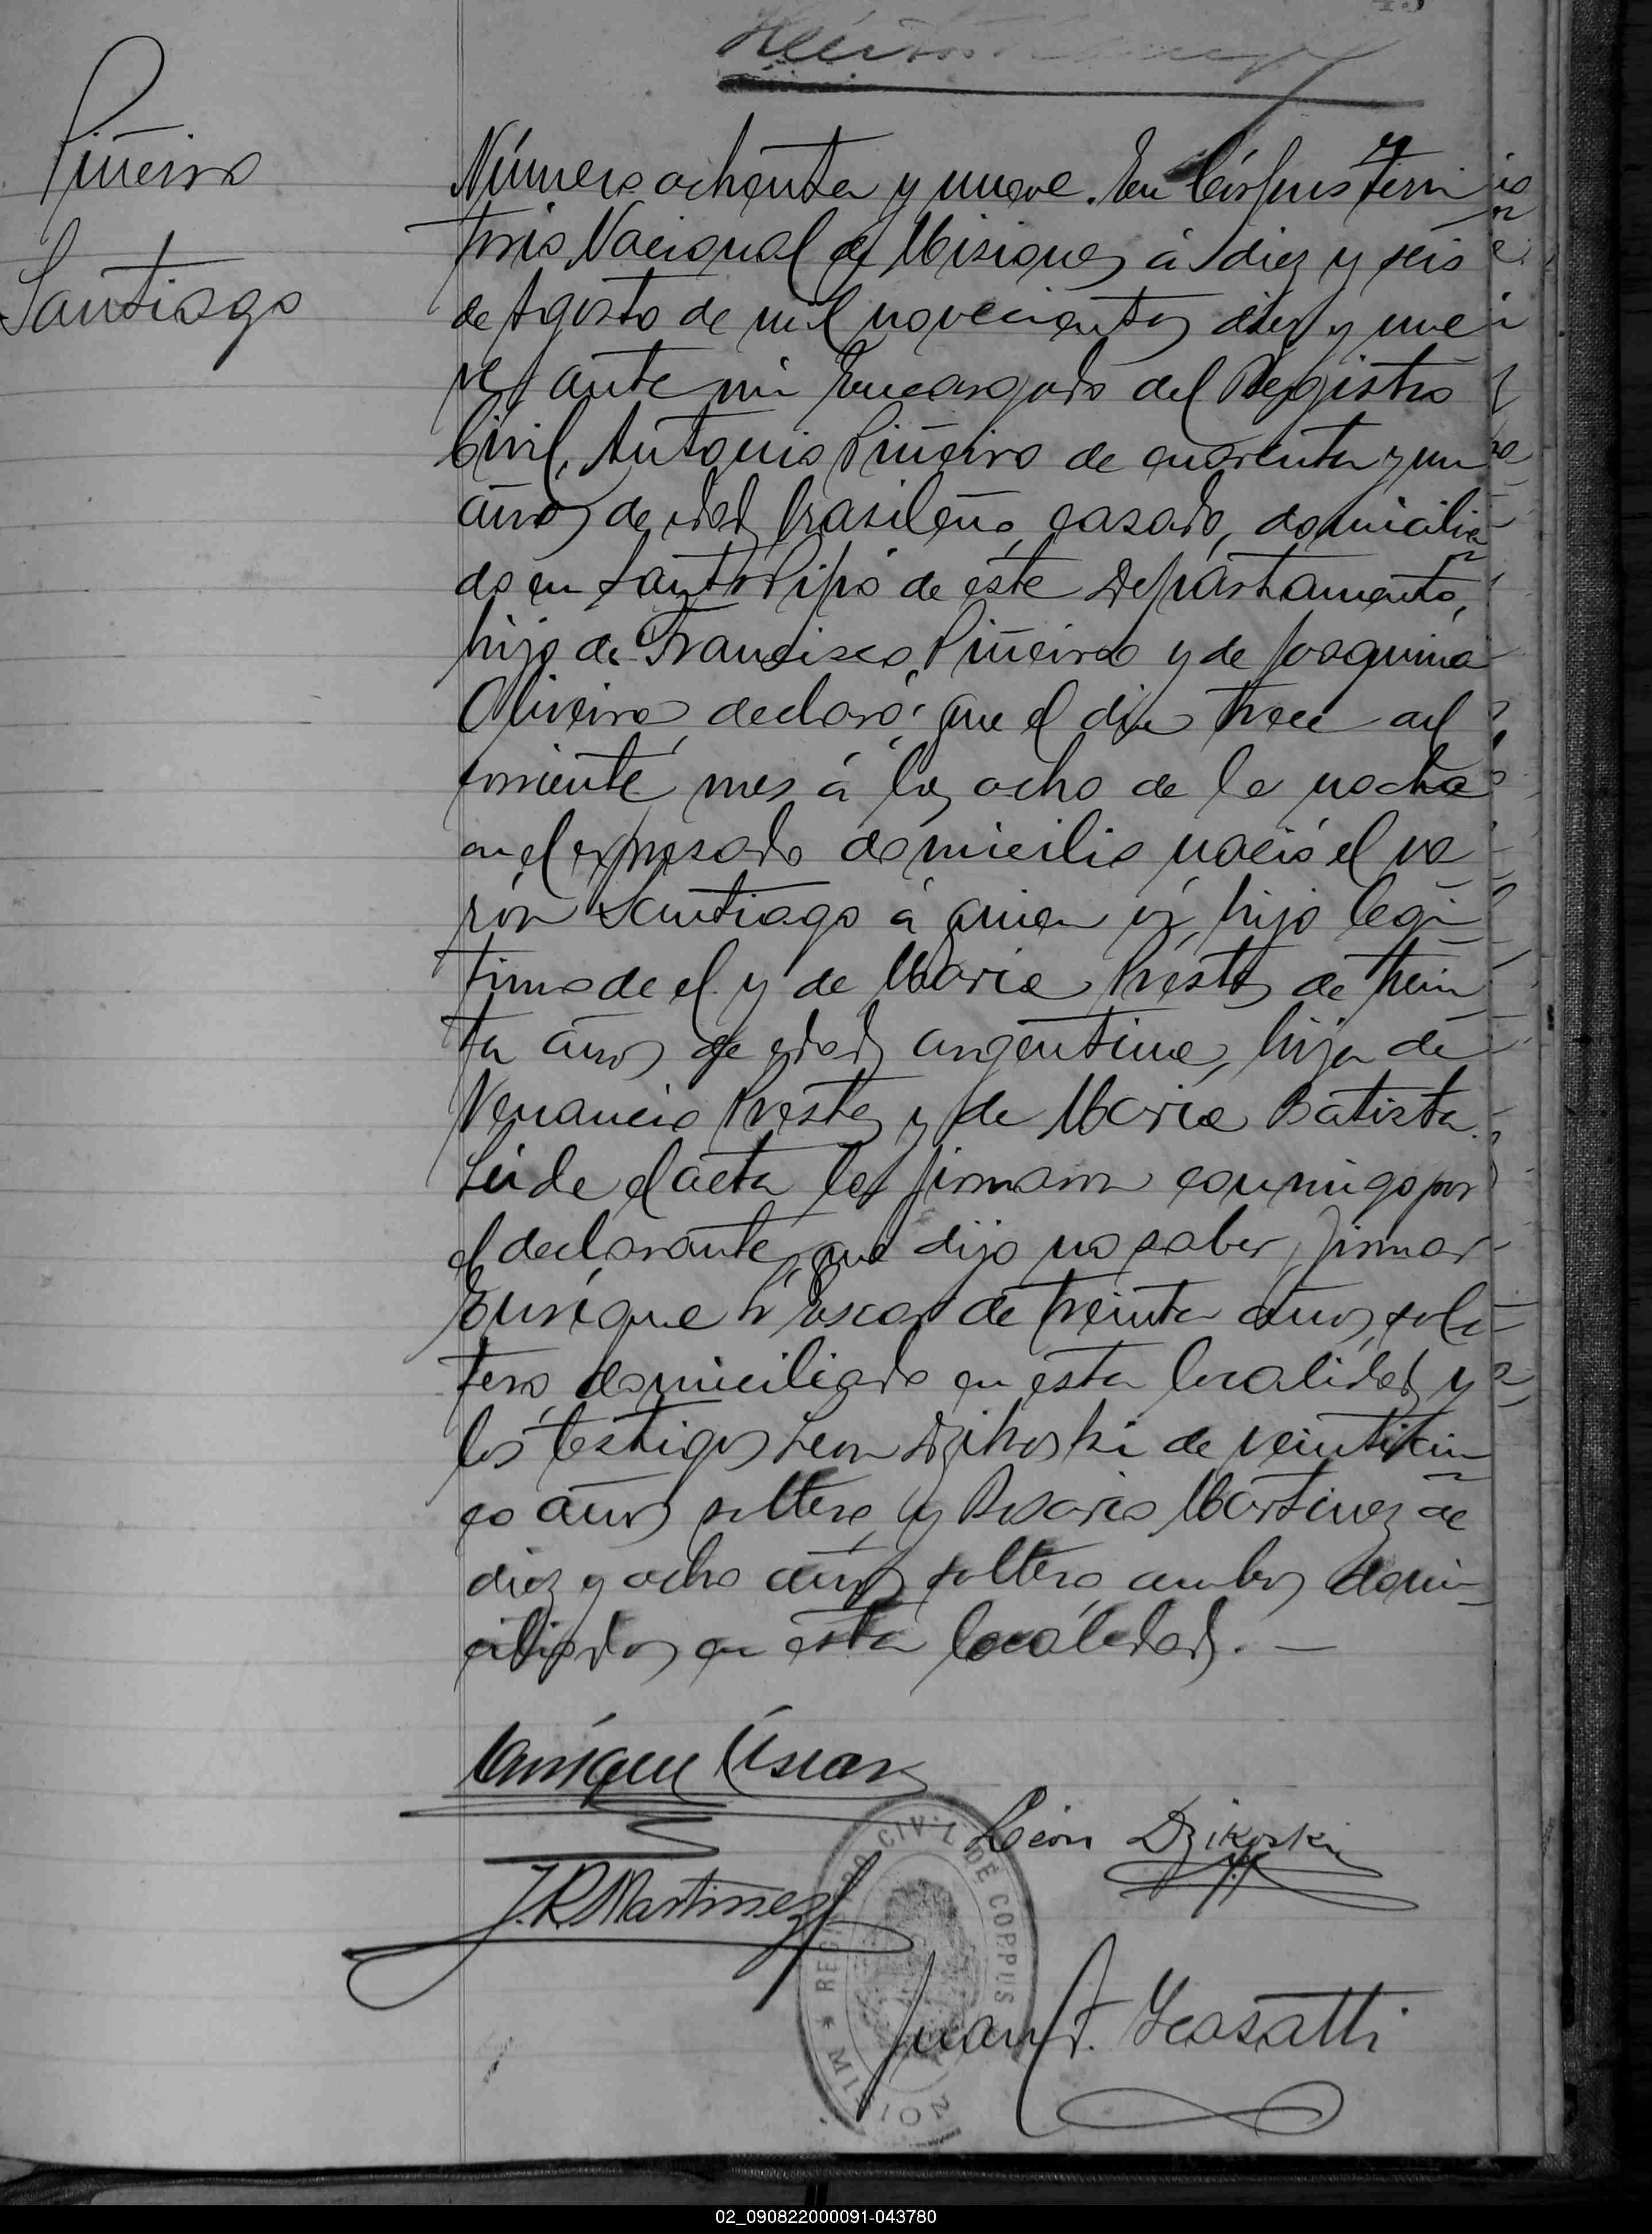 Piñeiro
Santiago
Número ochenta y nueve. En Córpus Terri
torio Nacional de Misiones á diez y seis
de Agosto de mil novecientos diez y nue
ve, ante mi Encargado del Registro
Civil, Antonio Piñeiro de cuarenta y un
años de edad, brasileño, casado, domicilia
do en Santo Pipó de este Departamento,
hijo de Francisco Piñeiro y de Joaquina
Oliveira, declaró: que el dia trece del
corriente mes á las ocho de la noche
en el expresado domicilio nació el va
rón Santiago á quien vi, hijo legi
timo de el y de Maria Prestes de trein
ta años de edad, argentina, hija de
Venancio Prestes y de Maria Batista.
Leida el acta la firmaron conmigo por
el declarante, que dijo no saber firmar
Enrique Uscar de treinta años, sol
tero, domiciliado en esta localidad y
los testigos Leon Dzikoski de veinticin
co años, soltero, y Rosario Martinez de
diez y ocho años, soltero, ambos domi
ciliados en esta localidad. —
Enrique
León Dzikoski
J. R. Martinez
Juan F.
REGISTRO CIVIL DE CORPUS
* MISIONES
02_090822000091-043780